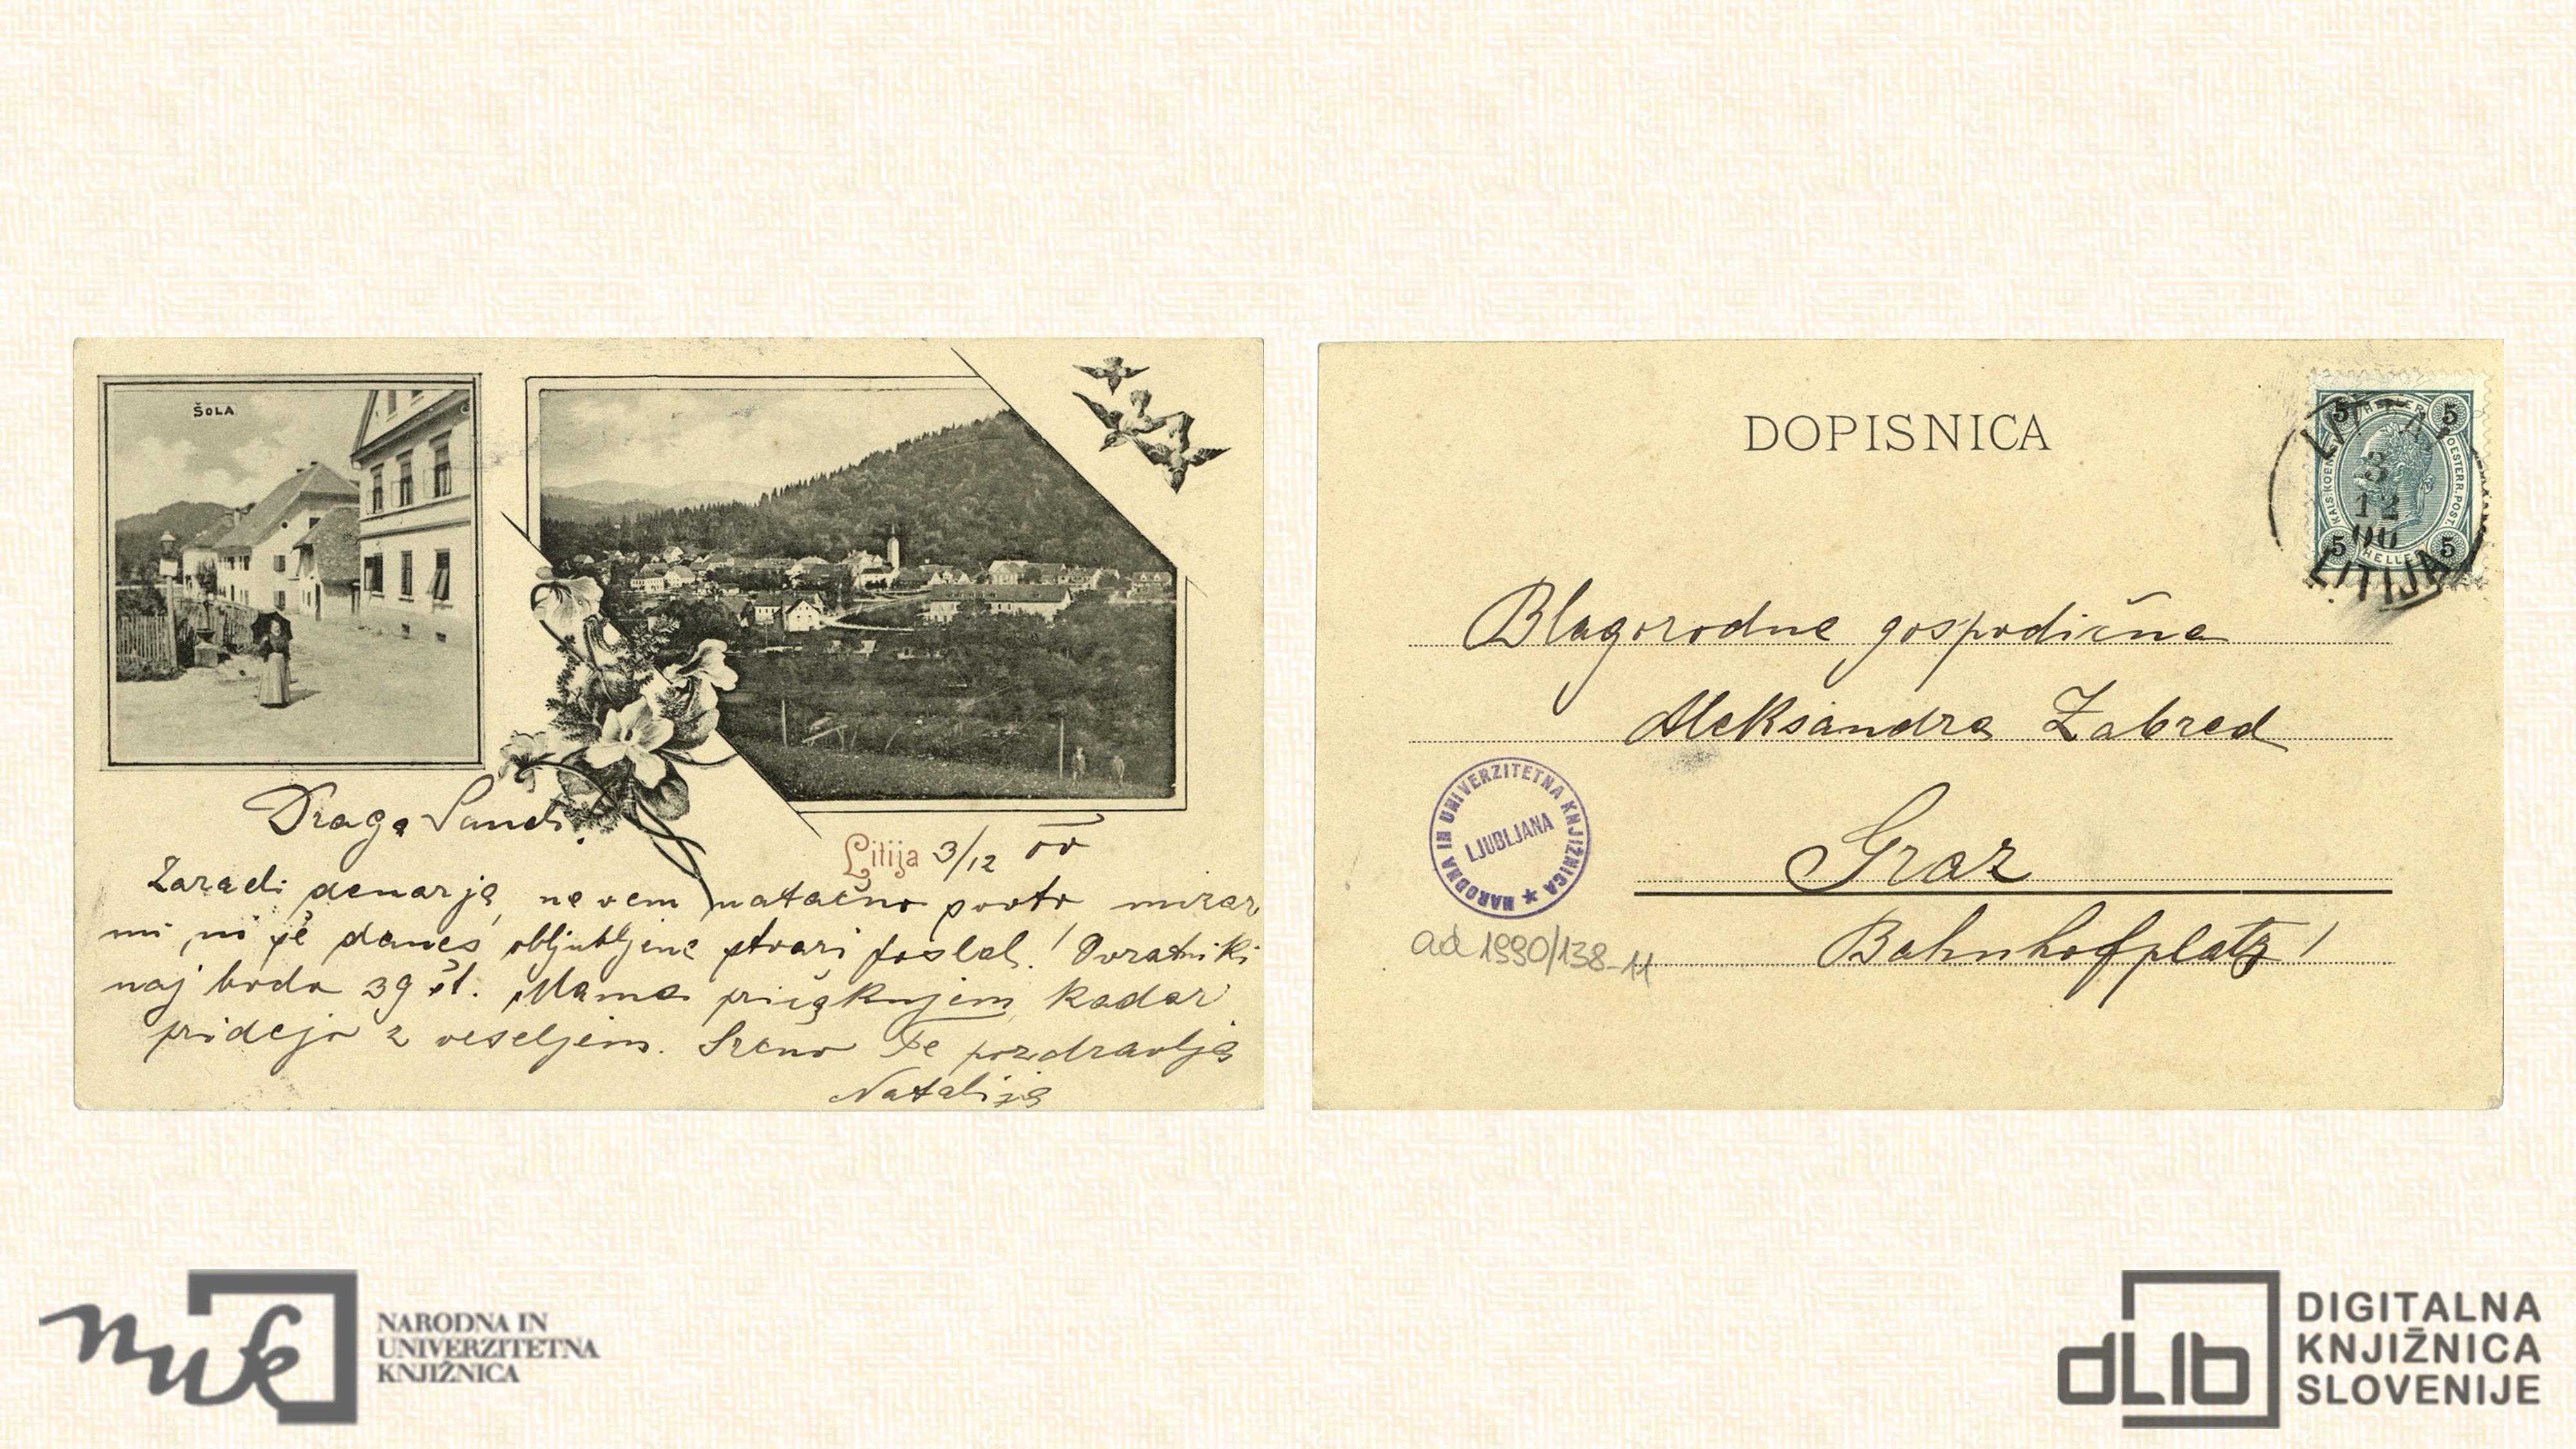 ŠOLA
Draga Sandi!
Litija 3/12 00
Zaradi denarja, ne vem natačno pooto mizar
mi, ni še danes obljubljene stvari poslal! Ovratniki
naj bodo 39 št. Mama pričakujem kadar
pridejo z veseljem. Srčno Te pozdravlja
Natalija
DOPISNICA
5 HELLER 5
KAIS. KOENIGL. OESTERR. POST.
5 HELLER 5
3
12
00
LITIJA
Blagorodna gospodična
Aleksandra Zabred
Graz
Bahnhofplatz!
NARODNA IN UNIVERZITETNA KNJIŽNICA
LJUBLJANA
ad 1990/138-11
nuk
NARODNA IN
UNIVERZITETNA
KNJIŽNICA
dLib
DIGITALNA
KNJIŽNICA
SLOVENIJE